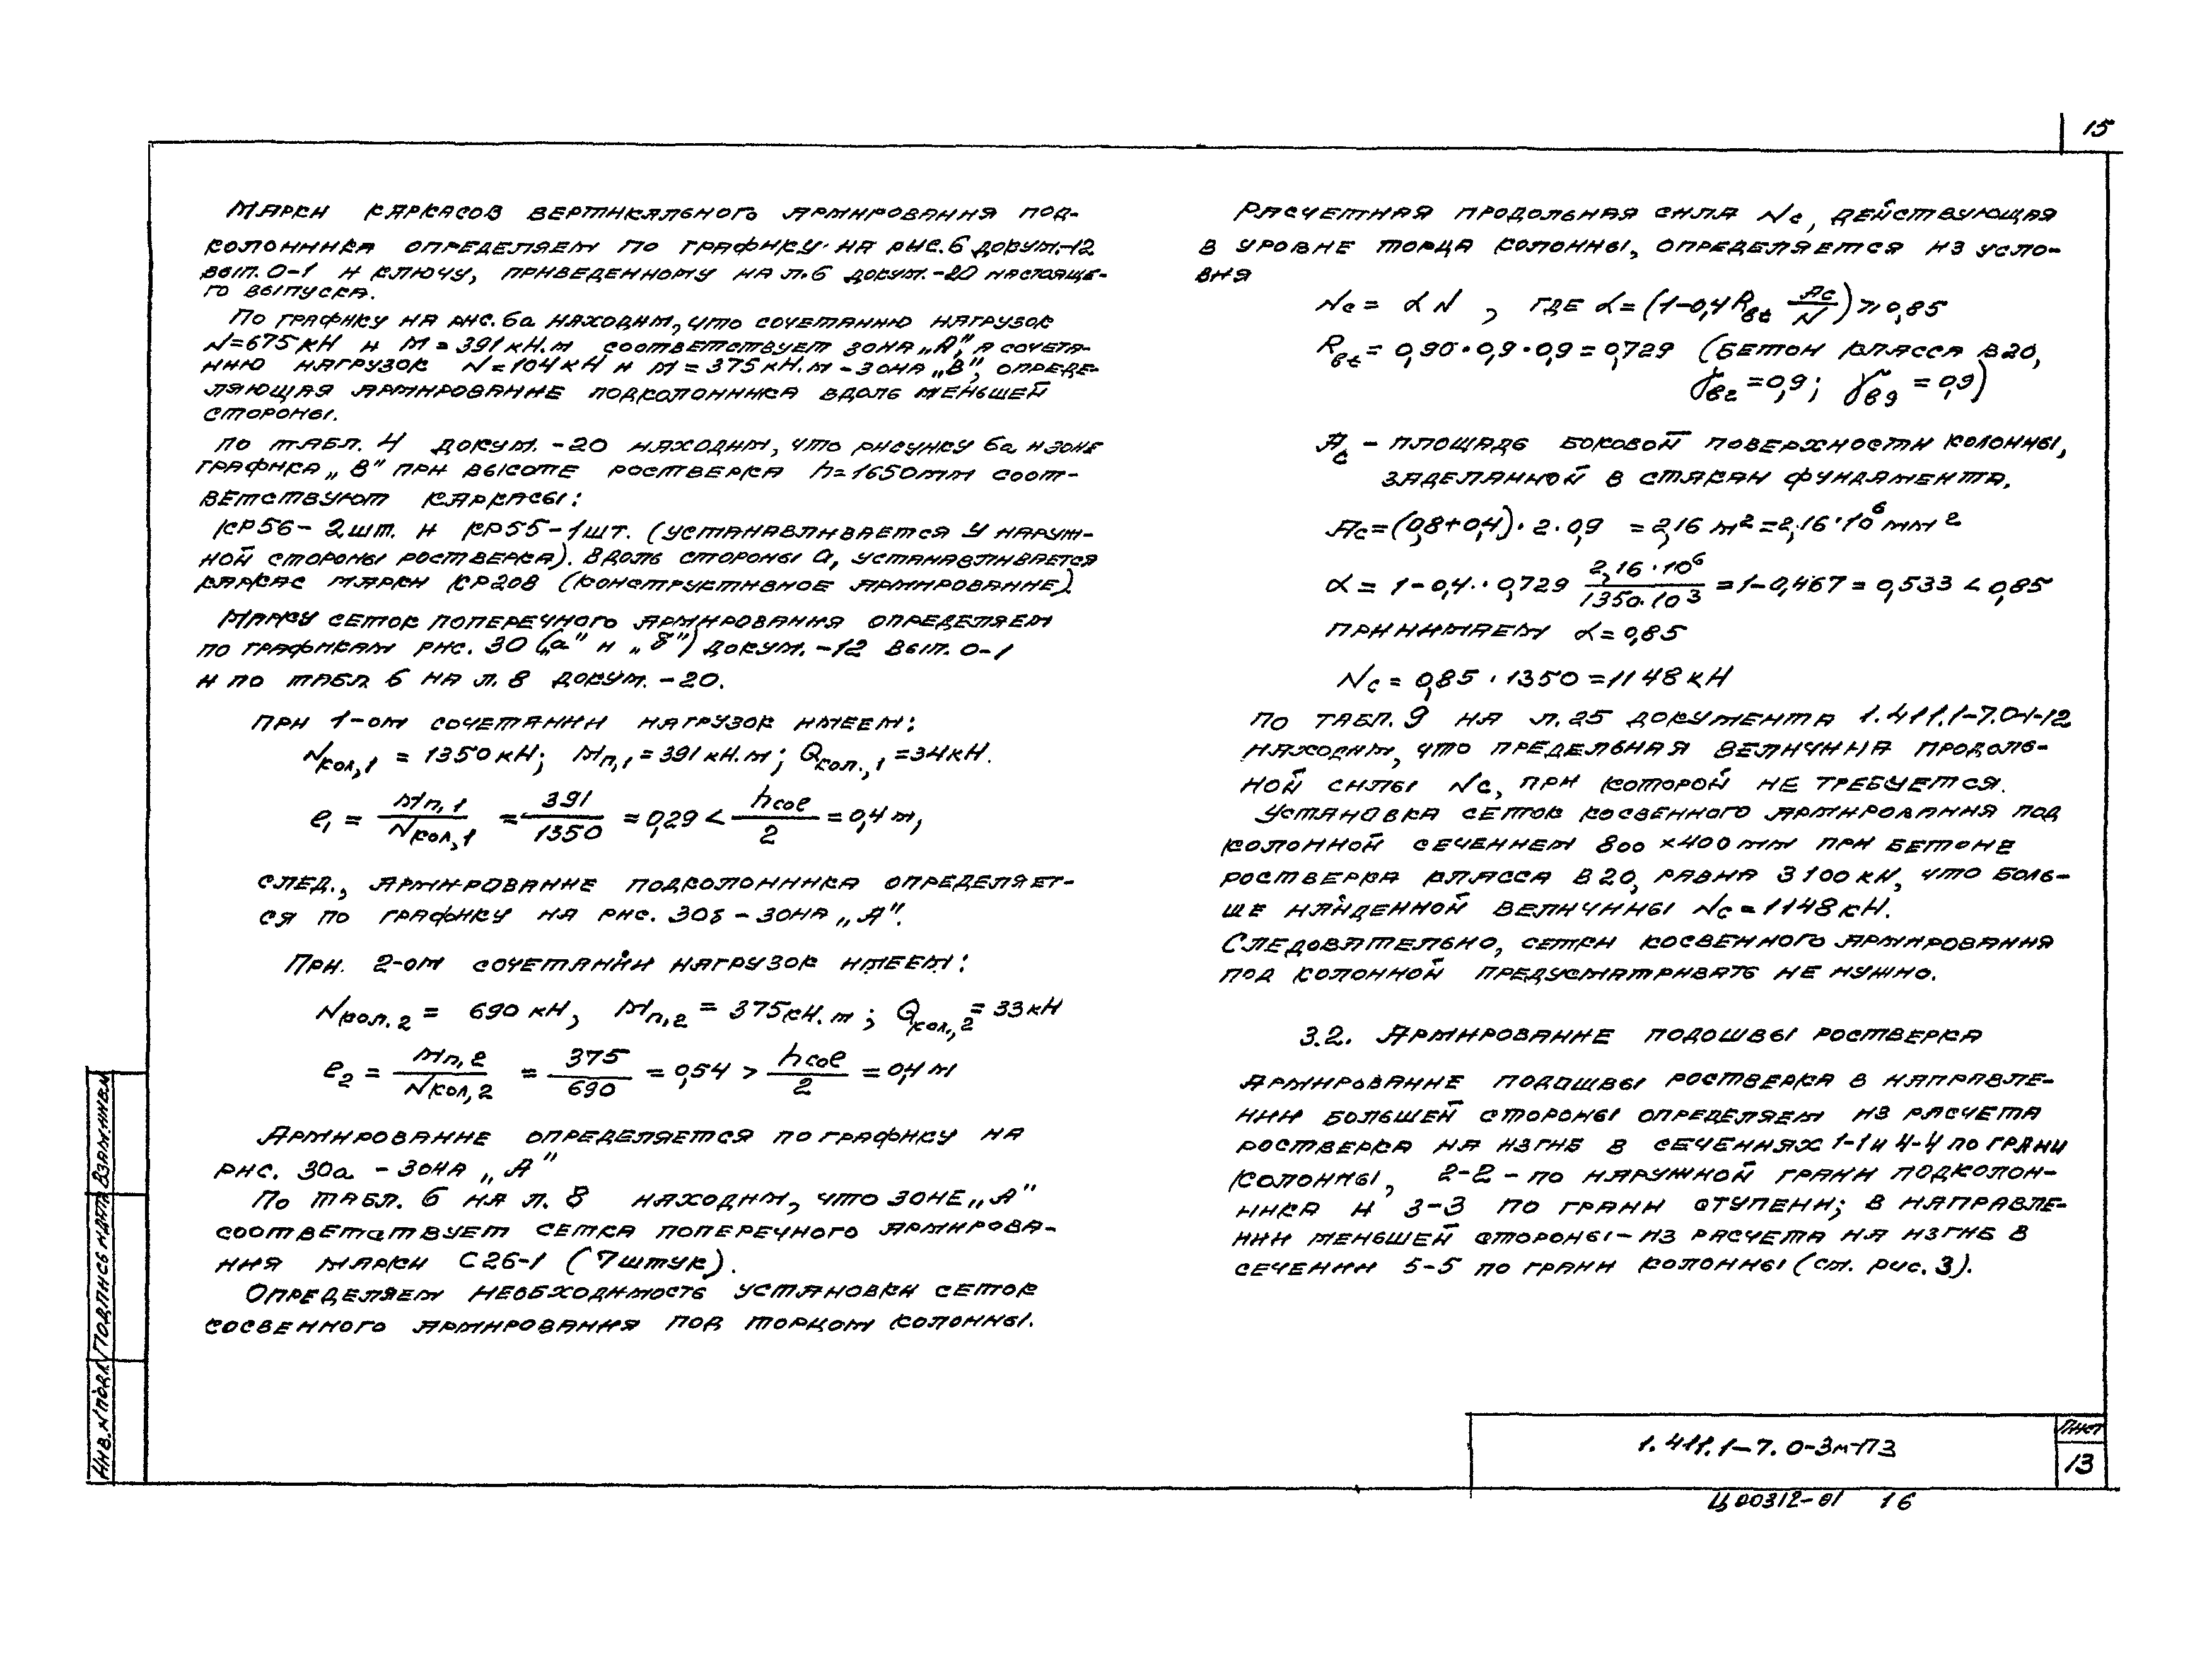 15
Марки каркасов вертикального армирования под-
колонника определяем по графику на рис. 6 докум.-12
вып. 0-1 и ключу, приведенному на л.6 докум. -20 настояще-
го выпуска.
По графику на рис. 6а находим, что сочетанию нагрузок
N=675кН и М = 391кН.м соответствует зона „А", а сочета-
нию нагрузок N=104кН и М=375кН.м - зона „В", опреде-
ляющая армирование подколонника вдоль меньшей
стороны.
По табл. 4 докум. -20 находим, что рисунку 6а и зоне
графика „В" при высоте ростверка h=1650мм соот-
ветствуют каркасы:
КР56 - 2шт. и КР55 - 1шт. (устанавливается у наруж-
ной стороны ростверка). Вдоль стороны а, устанавливается
каркас марки КР208 (конструктивное армирование).
Марку сеток поперечного армирования определяем
по графикам рис. 30 („а" и „б") докум. -12 вып. 0-1
и по табл. 6 на л. 8 докум. -20.
При 1-ом сочетании нагрузок имеем:
Nкол,1 = 1350кН; Мп,1 = 391кН.м; Qкол.,1 = 34кН.
e1 = Мп,1 / Nкол,1 = 391 / 1350 = 0,29 < hcol / 2 = 0,4м,
след., армирование подколонника определяет-
ся по графику на рис. 30б - зона „А".
При. 2-ом сочетании нагрузок имеем:
Nкол.2 = 690 кН, Мп,2 = 375кН.м; Qкол.,2 = 33кН
e2 = Мп,2 / Nкол,2 = 375 / 690 = 0,54 > hcol / 2 = 0,4м
Армирование определяется по графику на
рис. 30а - зона „А"
По табл. 6 на л. 8 находим, что зоне „А"
соответствует сетка поперечного армирова-
ния марки С26-1 (7штук).
Определяем необходимость установки сеток
косвенного армирования под торцом колонны.
Расчетная продольная сила Nc, действующая
в уровне торца колонны, определяется из усло-
вия
Nc = αN, где α = (1-0,4Rbt Ac / N) ≥ 0,85
Rbt = 0,90·0,9·0,9 = 0,729 (бетон класса В20,
γв2 = 0,9; γв9 = 0,9)
Ac - площадь боковой поверхности колонны,
заделанной в стакан фундамента.
Ac = (0,8+0,4)·2·0,9 = 2,16 м² = 2,16·10⁶ мм²
α = 1-0,4··0,729 2,16·10⁶ / 1350·10³ = 1-0,467 = 0,533 < 0,85
принимаем α = 0,85
Nc = 0,85·1350 = 1148кН
По табл. 9 на л. 25 документа 1.411.1-7.0-1-12
находим, что предельная величина продоль-
ной силы Nc, при которой не требуется.
Установка сеток косвенного армирования под
колонной сечением 800×400мм при бетоне
ростверка класса В20, равна 3100кН, что боль-
ше найденной величины Nc=1148кН.
Следовательно, сетки косвенного армирования
под колонной предусматривать не нужно.
3.2. Армирование подошвы ростверка
Армирование подошвы ростверка в направле-
нии большей стороны определяем из расчета
ростверка на изгиб в сечениях 1-1 и 4-4 по грани
колонны, 2-2 - по наружной грани подколон-
ника и 3-3 по грани ступени; в направле-
нии меньшей стороны - из расчета на изгиб в
сечении 5-5 по грани колонны (см. рис. 3).
Инв. N подл. Подпись и дата Взам.инв.N
1.411.1-7.0-3м-ПЗ
Лист
13
Ц00312-01 16